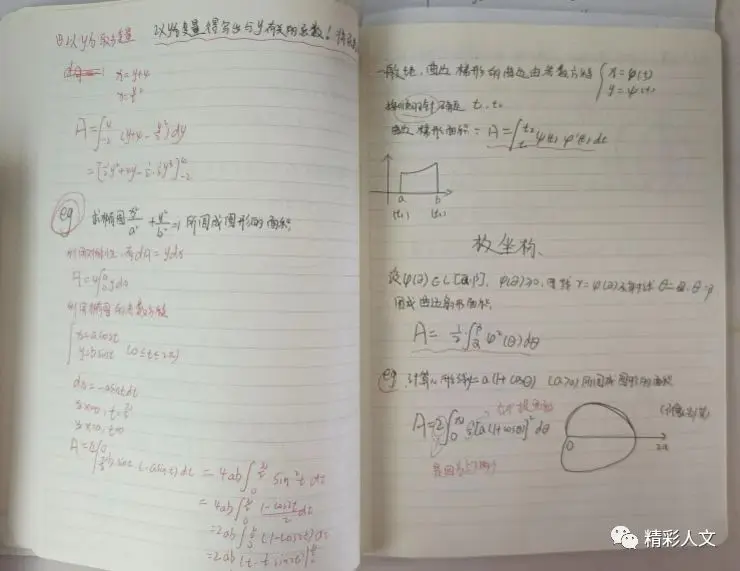 以y为积分变量 以y为变量得写出与y有关的函数!
x=y+4
A=∫_{-2}^{4}(y+4-½y²)dy
=[½y²+4y-
eg 求椭圆x²/a²+y²/b²=1所围成图形的面积
利用对称性, dA=ydx
A=4∫_0^a ydx
利用椭圆的参数方程
x=acost
y=bsint (0≤t≤2π)
dx=-asintdt
A=4∫ bsint(-asint)dt =4ab∫_0^{π/2} sin²t dt
=4ab∫ (1-cos2t)/2 dt
=2ab∫(1-cos2t)dt
=2ab(t-½sin2t)
一般地,曲边梯形的曲边由参数方程 x=φ(t)
y=ψ(t)
t₁ t₂
曲边梯形面积: A=∫_{t₁}^{t₂}ψ(t)φ'(t)dt
a b
(t₁) (t₂)
极坐标
设φ(θ)∈C[α,β], φ(θ)≥0, r=φ(θ)及射线θ=α,θ=β
围成曲边扇形面积
A=½∫_α^β φ²(θ)dθ
eg 计算心形线r=a(1+cosθ) (a>0)所围成图形的面积
A=2∫_0^π ½[a(1+cosθ)]²dθ
O 2a
精彩人文